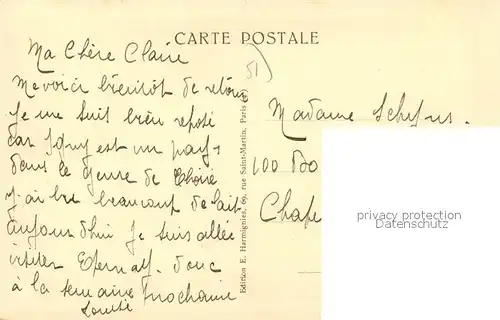 CARTE POSTALE
51
Ma Chère Claire
Me voici bientôt de retour
Je me suit bien reposé
car est un pays
dans le genre de
J'ai bu beaucoup de lait
aujourd'hui je suis allée
visiter donc
à la semaine prochaine
Edition E. Harmignies, 69, rue Saint-Martin, Paris
Madame
100
privacy protection
Datenschutz